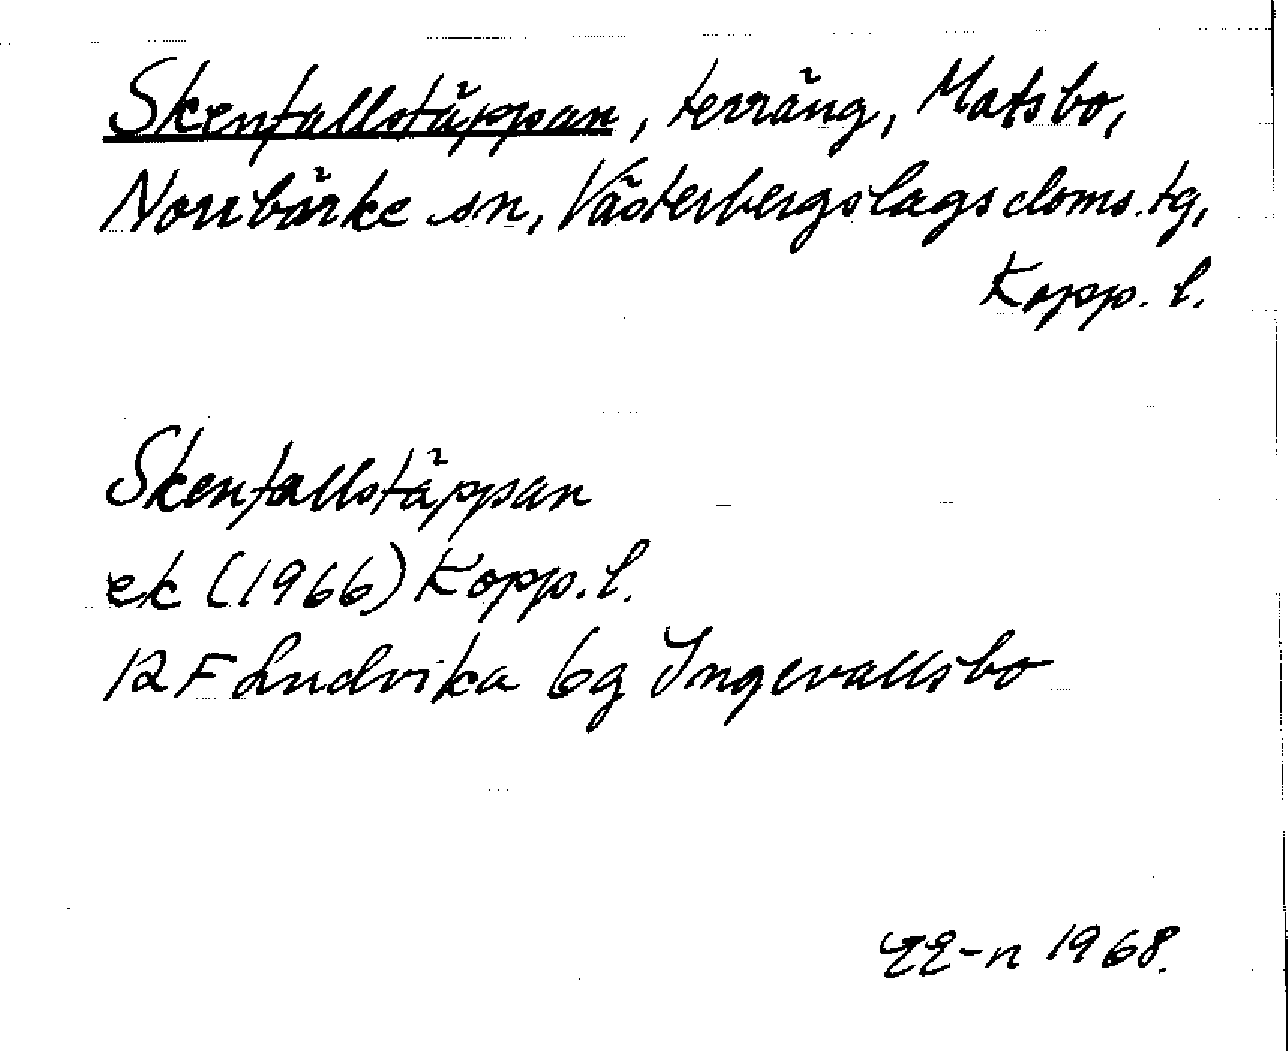 Skenfallstäppan, terräng, Matsbo,
Norrbärke sn, Västerbergslags doms.tg,
Kopp. l.
Skenfallstäppan
ek (1966) Kopp. l.
12 F Ludvika 6g Ingevallsbo
EE-n 1968.